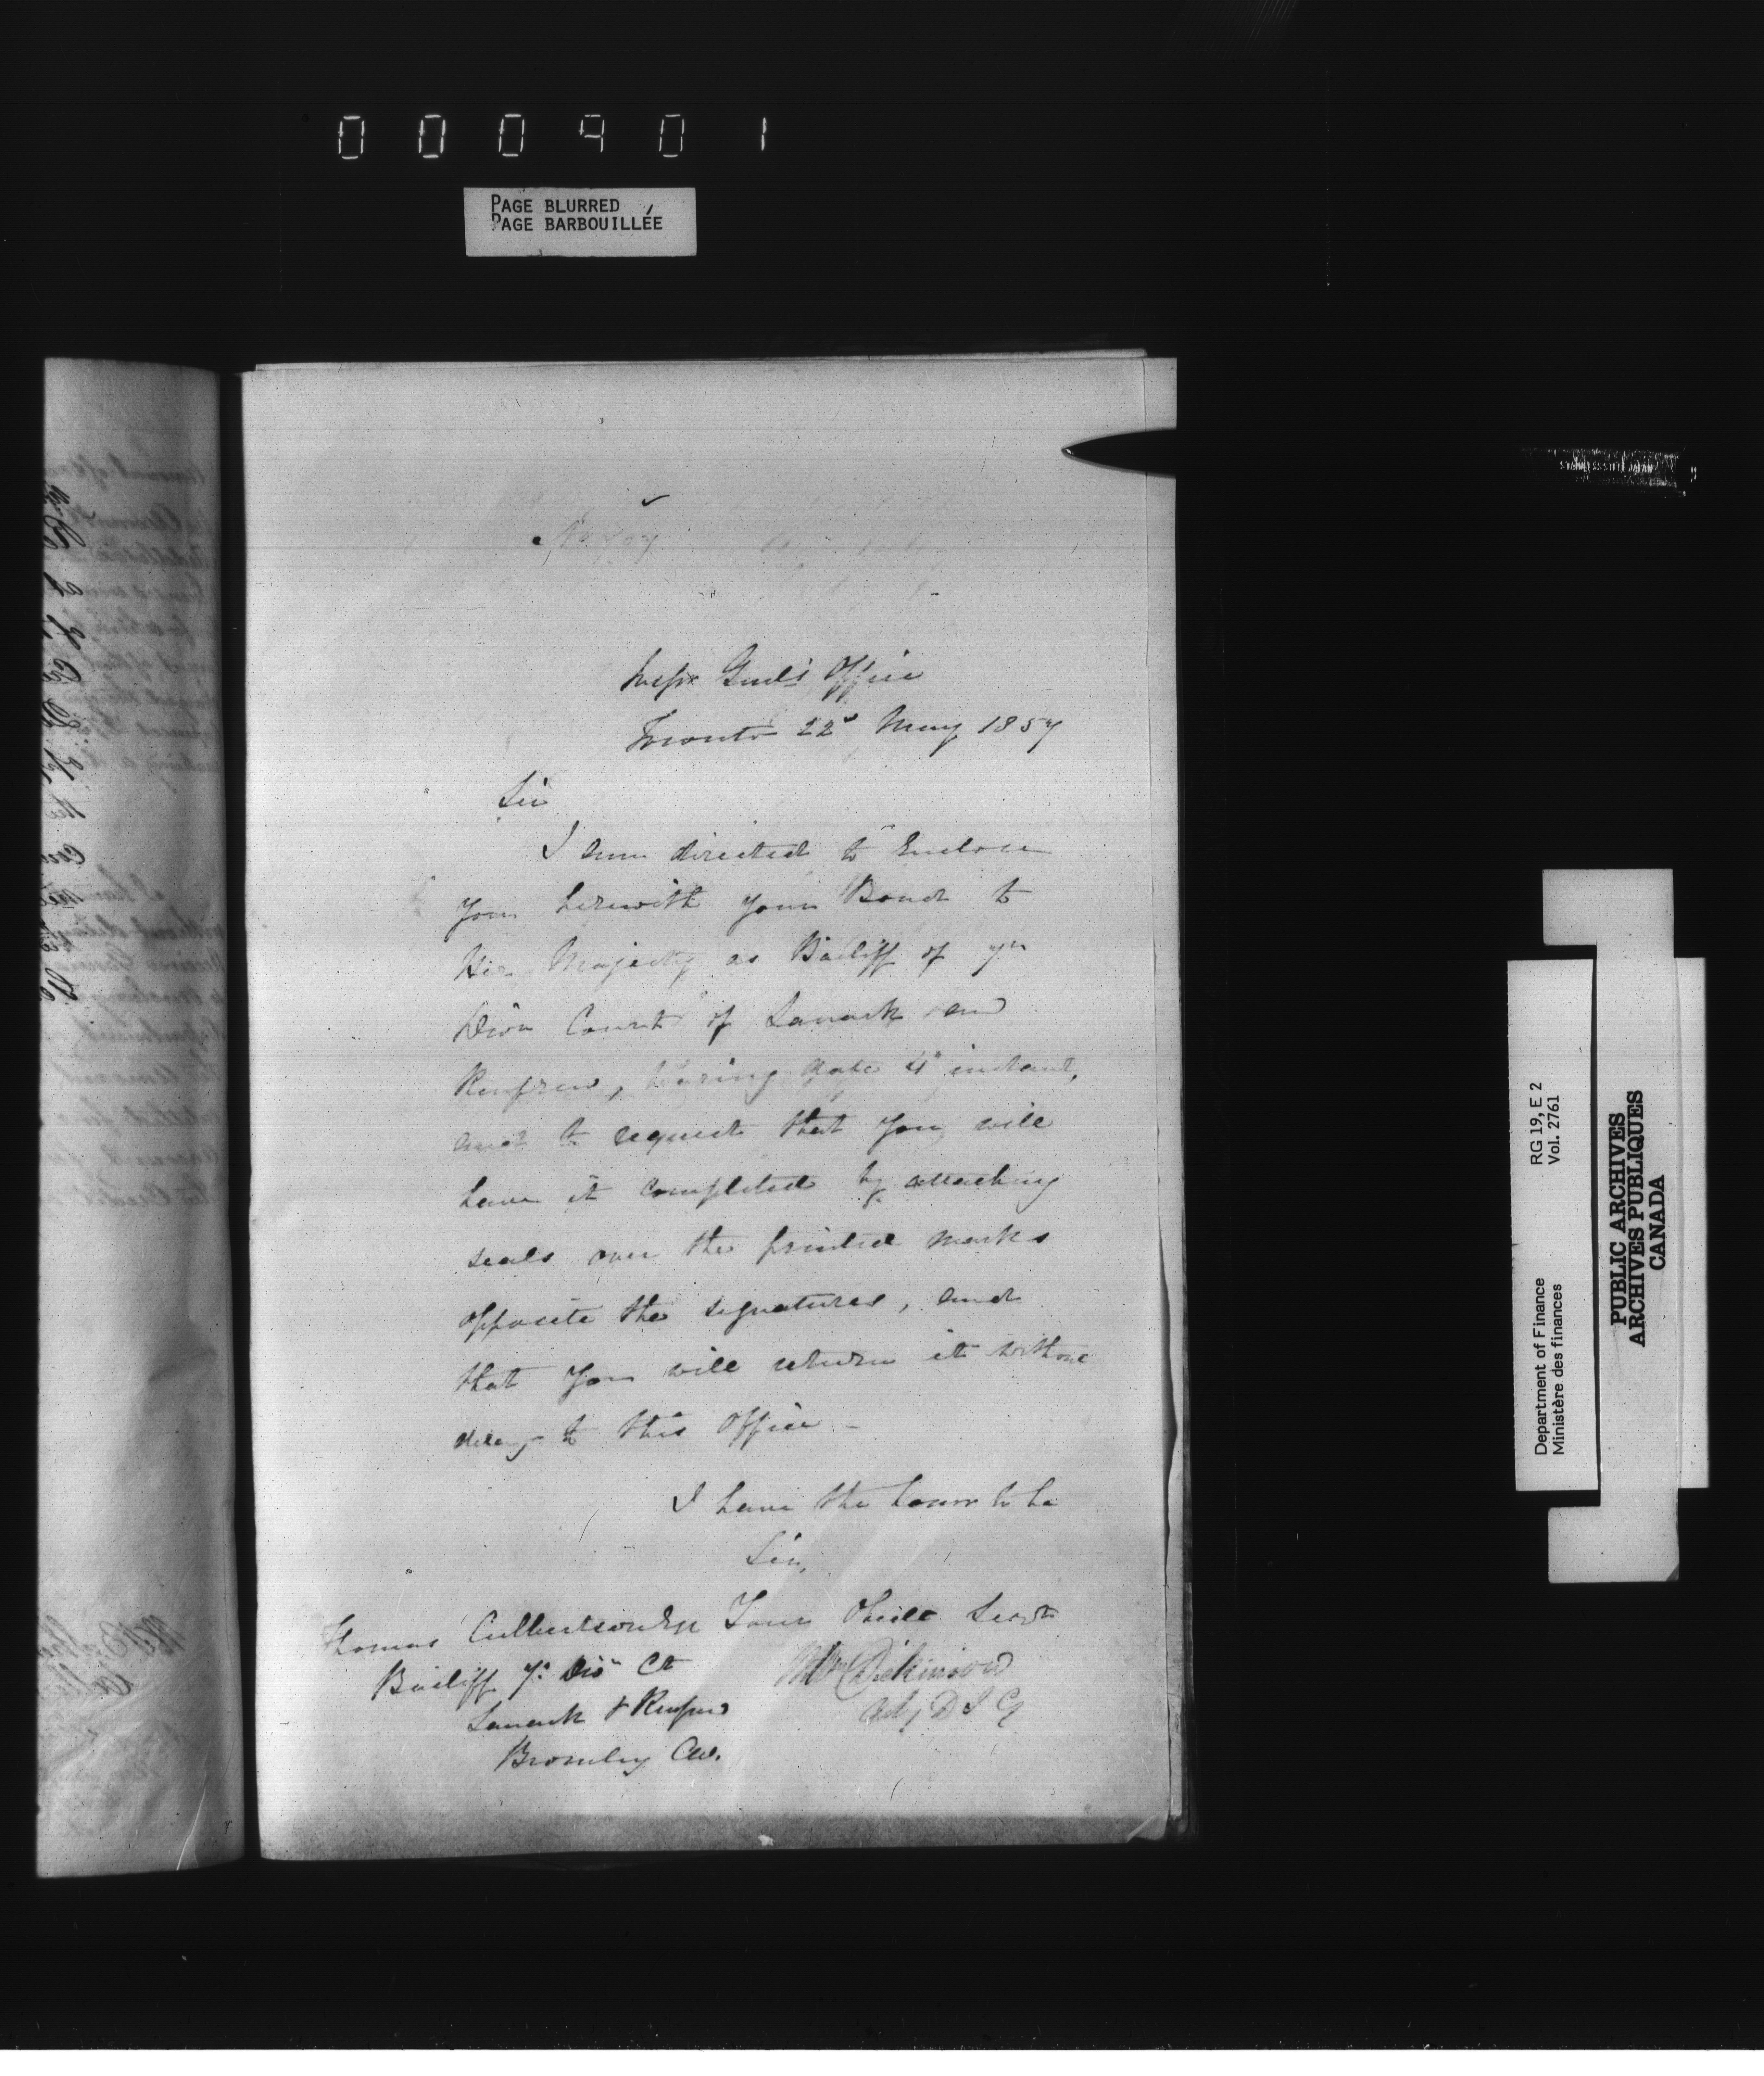 000901
PAGE BLURRED
PAGE BARBOUILLÉE
No 707
Inspr Genl's Office
Toronto 22d May 1857
Sir
I am directed to Enclose
you herewith your Bond to
Her Majesty as Bailiff of 7th
Divn Court of Lanark and
Renfrew, bearing date 4th instant,
and to request that you will
have it completed by attaching
seals over the printed marks
opposite the signatures, and
that you will return it without
delay to this Office –
I have the honor to be
Sir,
Your Obedt Servt
Wm Dickinson
Actg D I G
Thomas Culbertson Esq
Bailiff 7th Divn Ct
Lanark & Renfrew
Bromley CW.
STAINLESS STEEL JAPAN
RG 19, E 2
Vol. 2761
Department of Finance
Ministère des finances
PUBLIC ARCHIVES
ARCHIVES PUBLIQUES
CANADA